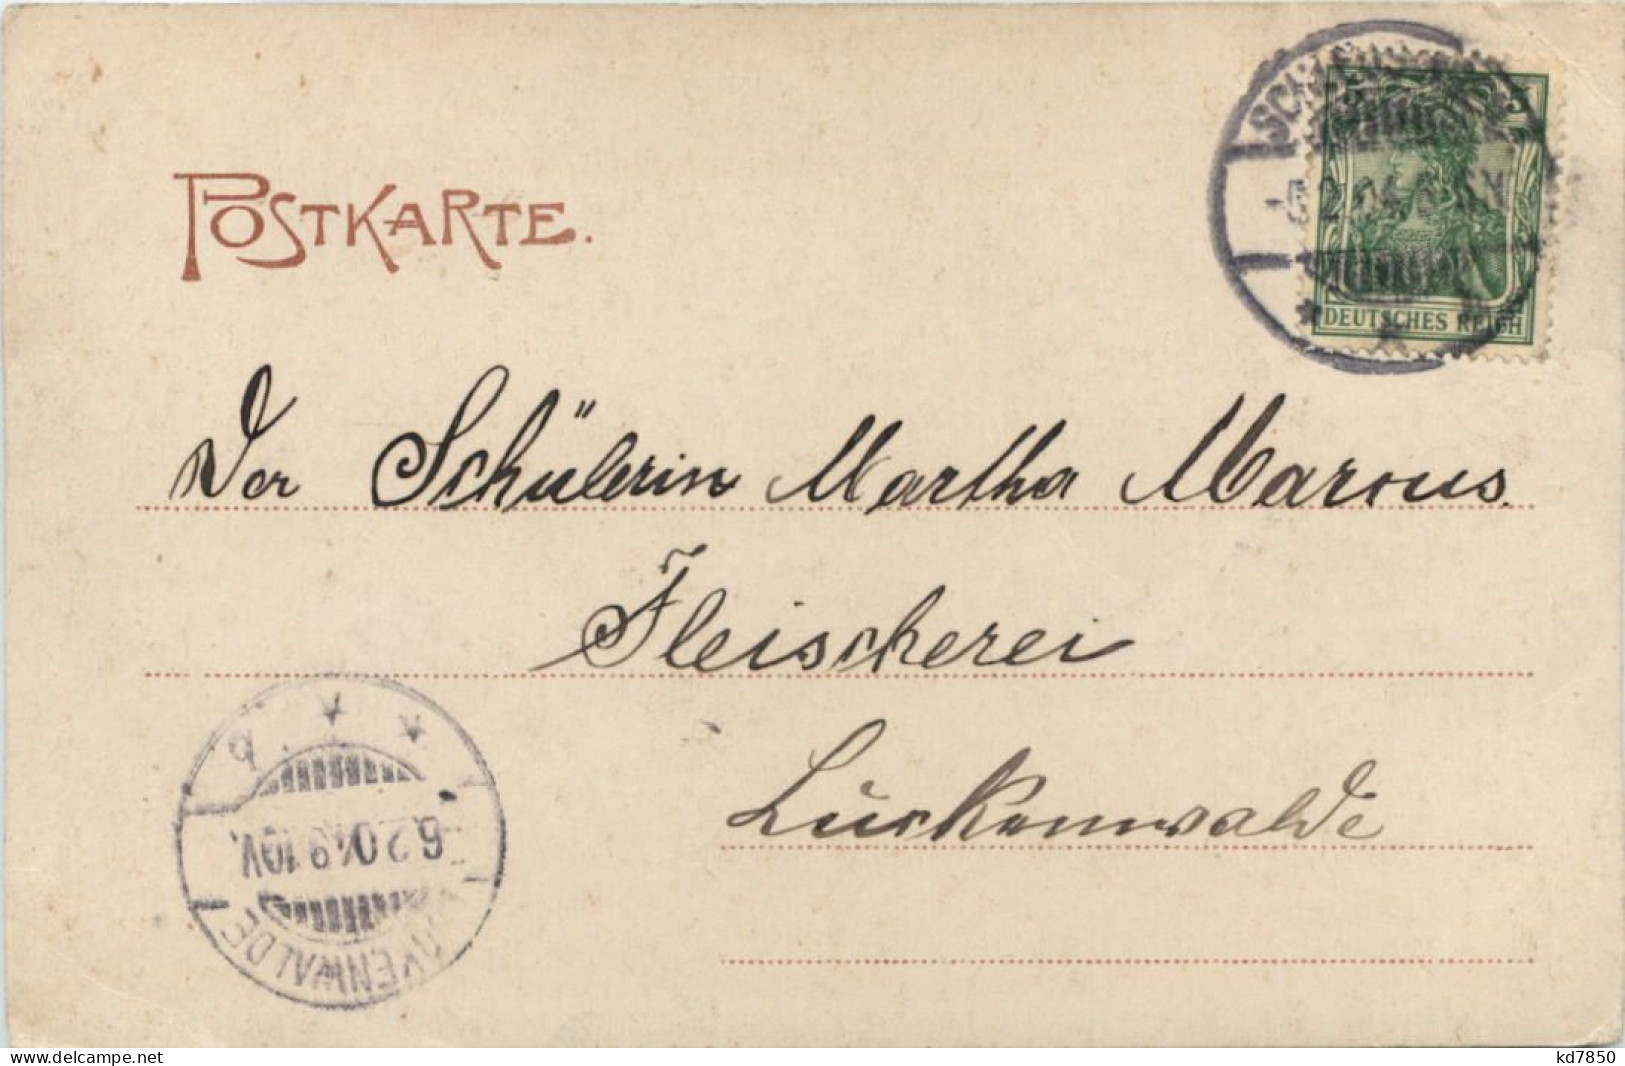 POSTKARTE.
5 5
DEUTSCHES REICH
Der Schülerin Martha Marcus.
Fleischerei
Luckenwalde
LUCKENWALDE
6.2.04 9.10V.
b
www.delcampe.net
kd7850